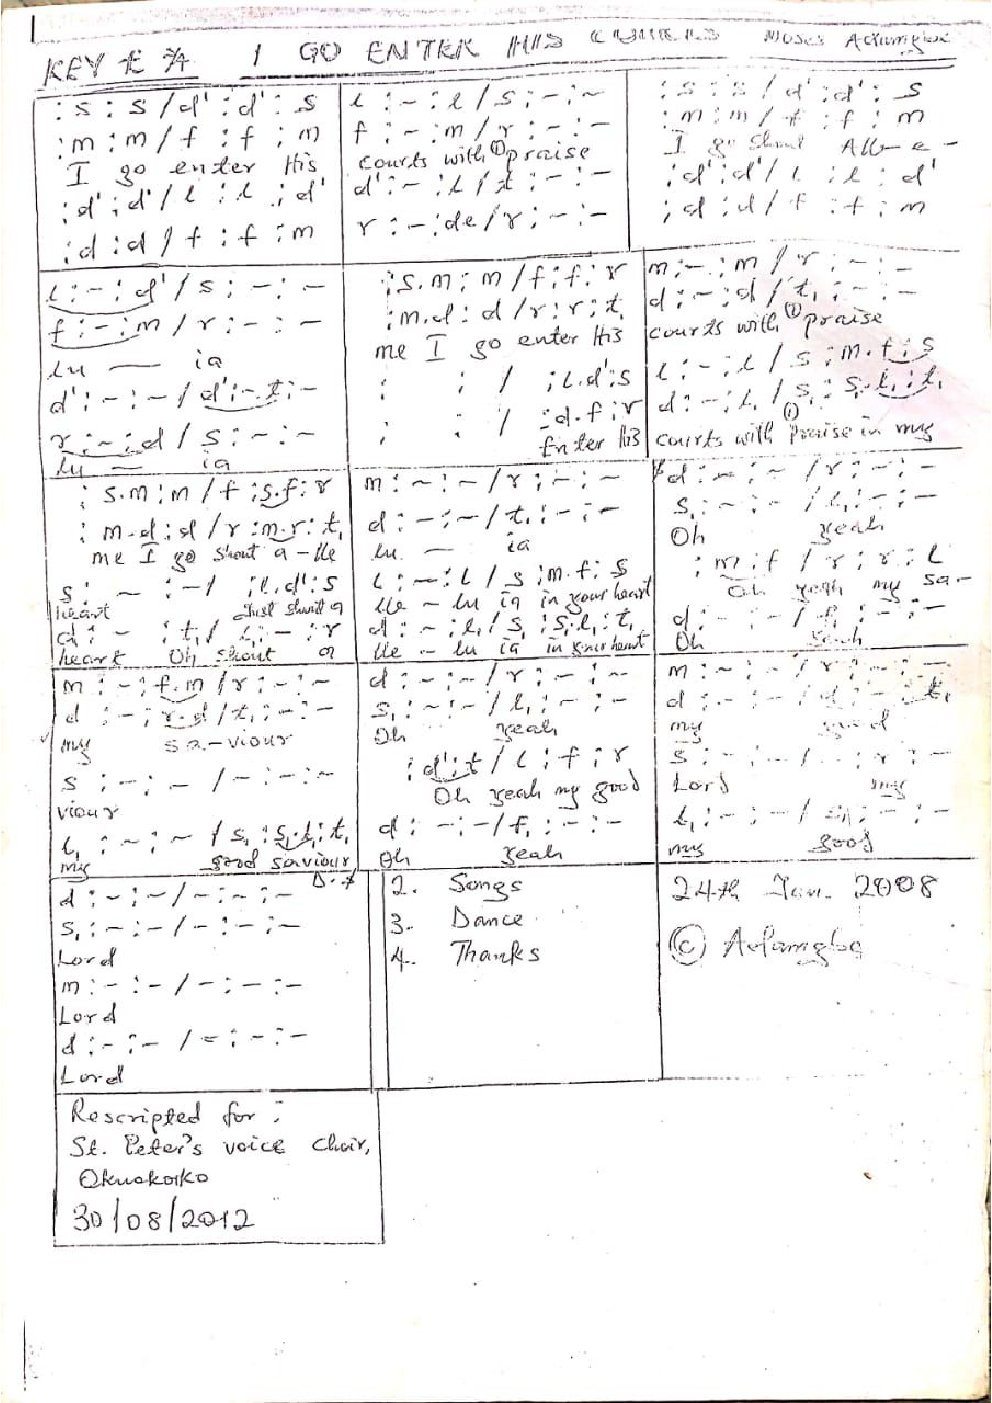 KEY E 3/4 I GO ENTER HIS Moses
: s : s / d' : d' : s
: m : m / f : f : m
I go enter His
: d' : d' / l : l : d'
: d : d / f : f : m
l : - : l / s : - : -
f : - : m / r : - : -
courts with ① praise
d' : - : l / t : - : -
r : - : de / r : - : -
: s : s / d' : d' : s
: m : m / f : f : m
I go Shout Alle -
: d' : d' / l : l : d'
: d : d / f : f : m
l : - : d' / s : - : -
f : - : m / r : - : -
lu — ia
d' : - : - / d' : - . t : -
r : - : d / s : - : -
lu — ia
: s . m : m / f : f : r
: m . d : d / r : r : t,
me I go enter His
: : / : l . d' : s
: : / : d . f : r
Enter His
m : - : m / r : - : -
d : - : d / t, : - : -
courts with ① praise
l : - : l / s : m . f : s
d : - : l, / s, : s, . l, : t,
courts with ① Praise in my
: s . m : m / f : s . f : r
: m . d : d / r : m . r : t,
me I go shout a - lle
s : - : - / : l . d' : s
heart Just shout a
d : - : t, / l, : - : r
heart Oh shout a
m : - : - / r : - : -
d : - : - / t, : - : -
lu — ia
l : - : l / s : m . f : s
lle - lu ia in your heart
d : - : l, / s, : s, . l, : t,
lle - lu ia in your heart
d : - : - / r : - : -
s, : - : - / l, : - : -
Oh yeah
: m : f / r : r : l
Oh yeah my sa -
d : - : - / f, : - : -
Oh yeah
m : - : f . m / r : - : -
d : - : r . d / t, : - : -
my sa - viour
s : - : - / - : - : -
viour
l, : - : - / s, : s, . l, : t,
my good saviour
d : - : - / r : - : -
s, : - : - / l, : - : -
Oh yeah
: d' : t / l : f : r
Oh yeah my good
d : - : - / f, : - : -
Oh yeah
m : - : - / r : - : -
d : - : - / d : - : t,
my good
s : - : - / - : r : -
Lord my
l, : - : - / s, : - : -
my good
D.
d : - : - / - : - : -
s, : - : - / - : - : -
Lord
m : - : - / - : - : -
Lord
d : - : - / - : - : -
Lord
2. Songs
3. Dance
4. Thanks
24th Jan. 2008
©
Rescripted for :
St. Peter's voice Choir,
Okuokoko
30/08/2012